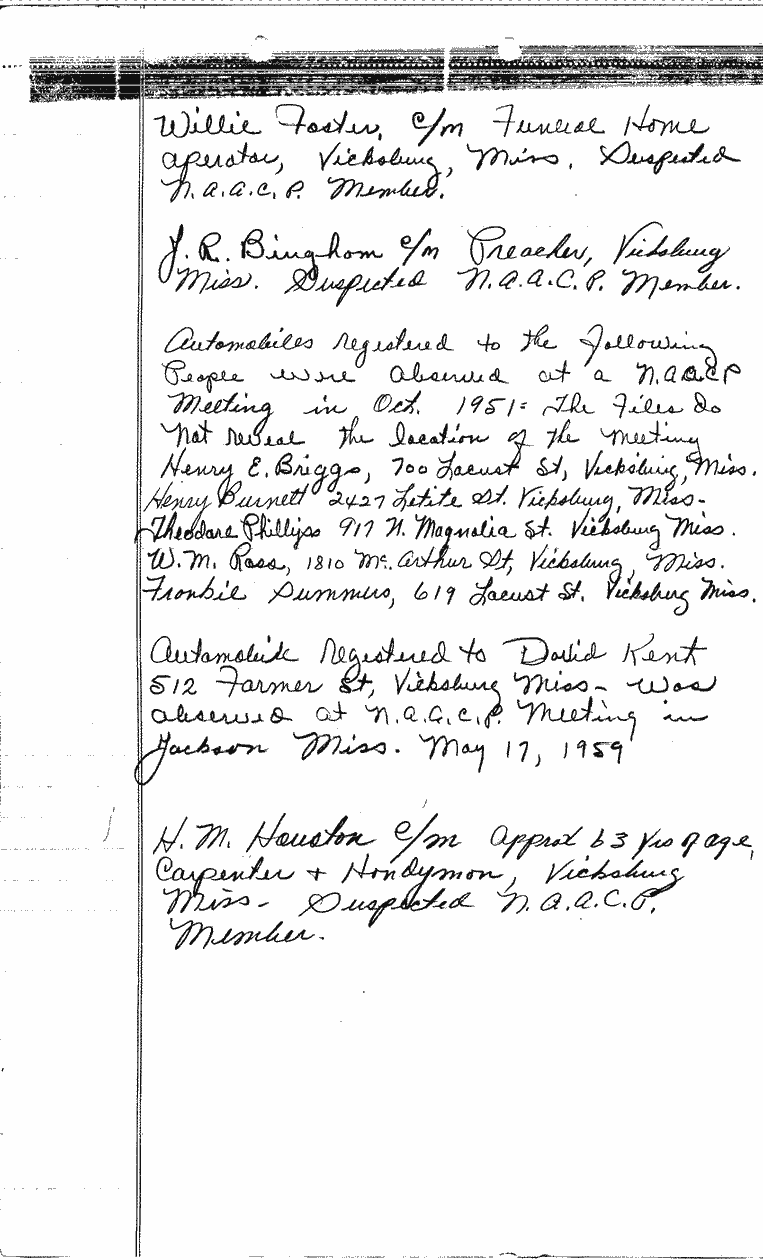 Willie Foster, c/m Funeral Home
operator, Vicksburg, Miss. Suspected
N.A.A.C.P. Member.
J. R. Bingham c/m Preacher, Vicksburg
Miss. Suspected N.A.A.C.P. Member.
Automobiles registered to the following
People were observed at a N.A.A.C.P
Meeting in Oct. 1951- The Files do
not reveal the location of the meeting
Henry E. Briggs, 700 Locust St, Vicksburg, Miss.
Henry Burnett 2427 Letite St. Vicksburg, Miss-
Theodore Phillips 917 N. Magnolia St. Vicksburg Miss.
W. M. Ross, 1810 Mc. Arthur St, Vicksburg, Miss.
Frankie Summers, 619 Locust St. Vicksburg Miss.
Automobile Registered to David Kent
512 Farmer St, Vicksburg Miss- was
observed at N.A.A.C.P. Meeting in
Jackson Miss. May 17, 1959
H. M. Houston c/m approx 63 yrs of age,
Carpenter + Handyman, Vicksburg
Miss- Suspected N.A.A.C.P.
Member.